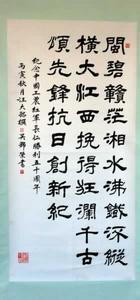 閩碧贛茫湘水沸鐵流縱
橫大江西挽得狂瀾千古
頌先鋒抗日創新紀
紀念中國工農紅軍長征勝利五十周年
丙寅秋月汪大銘撰 吳邦榮書